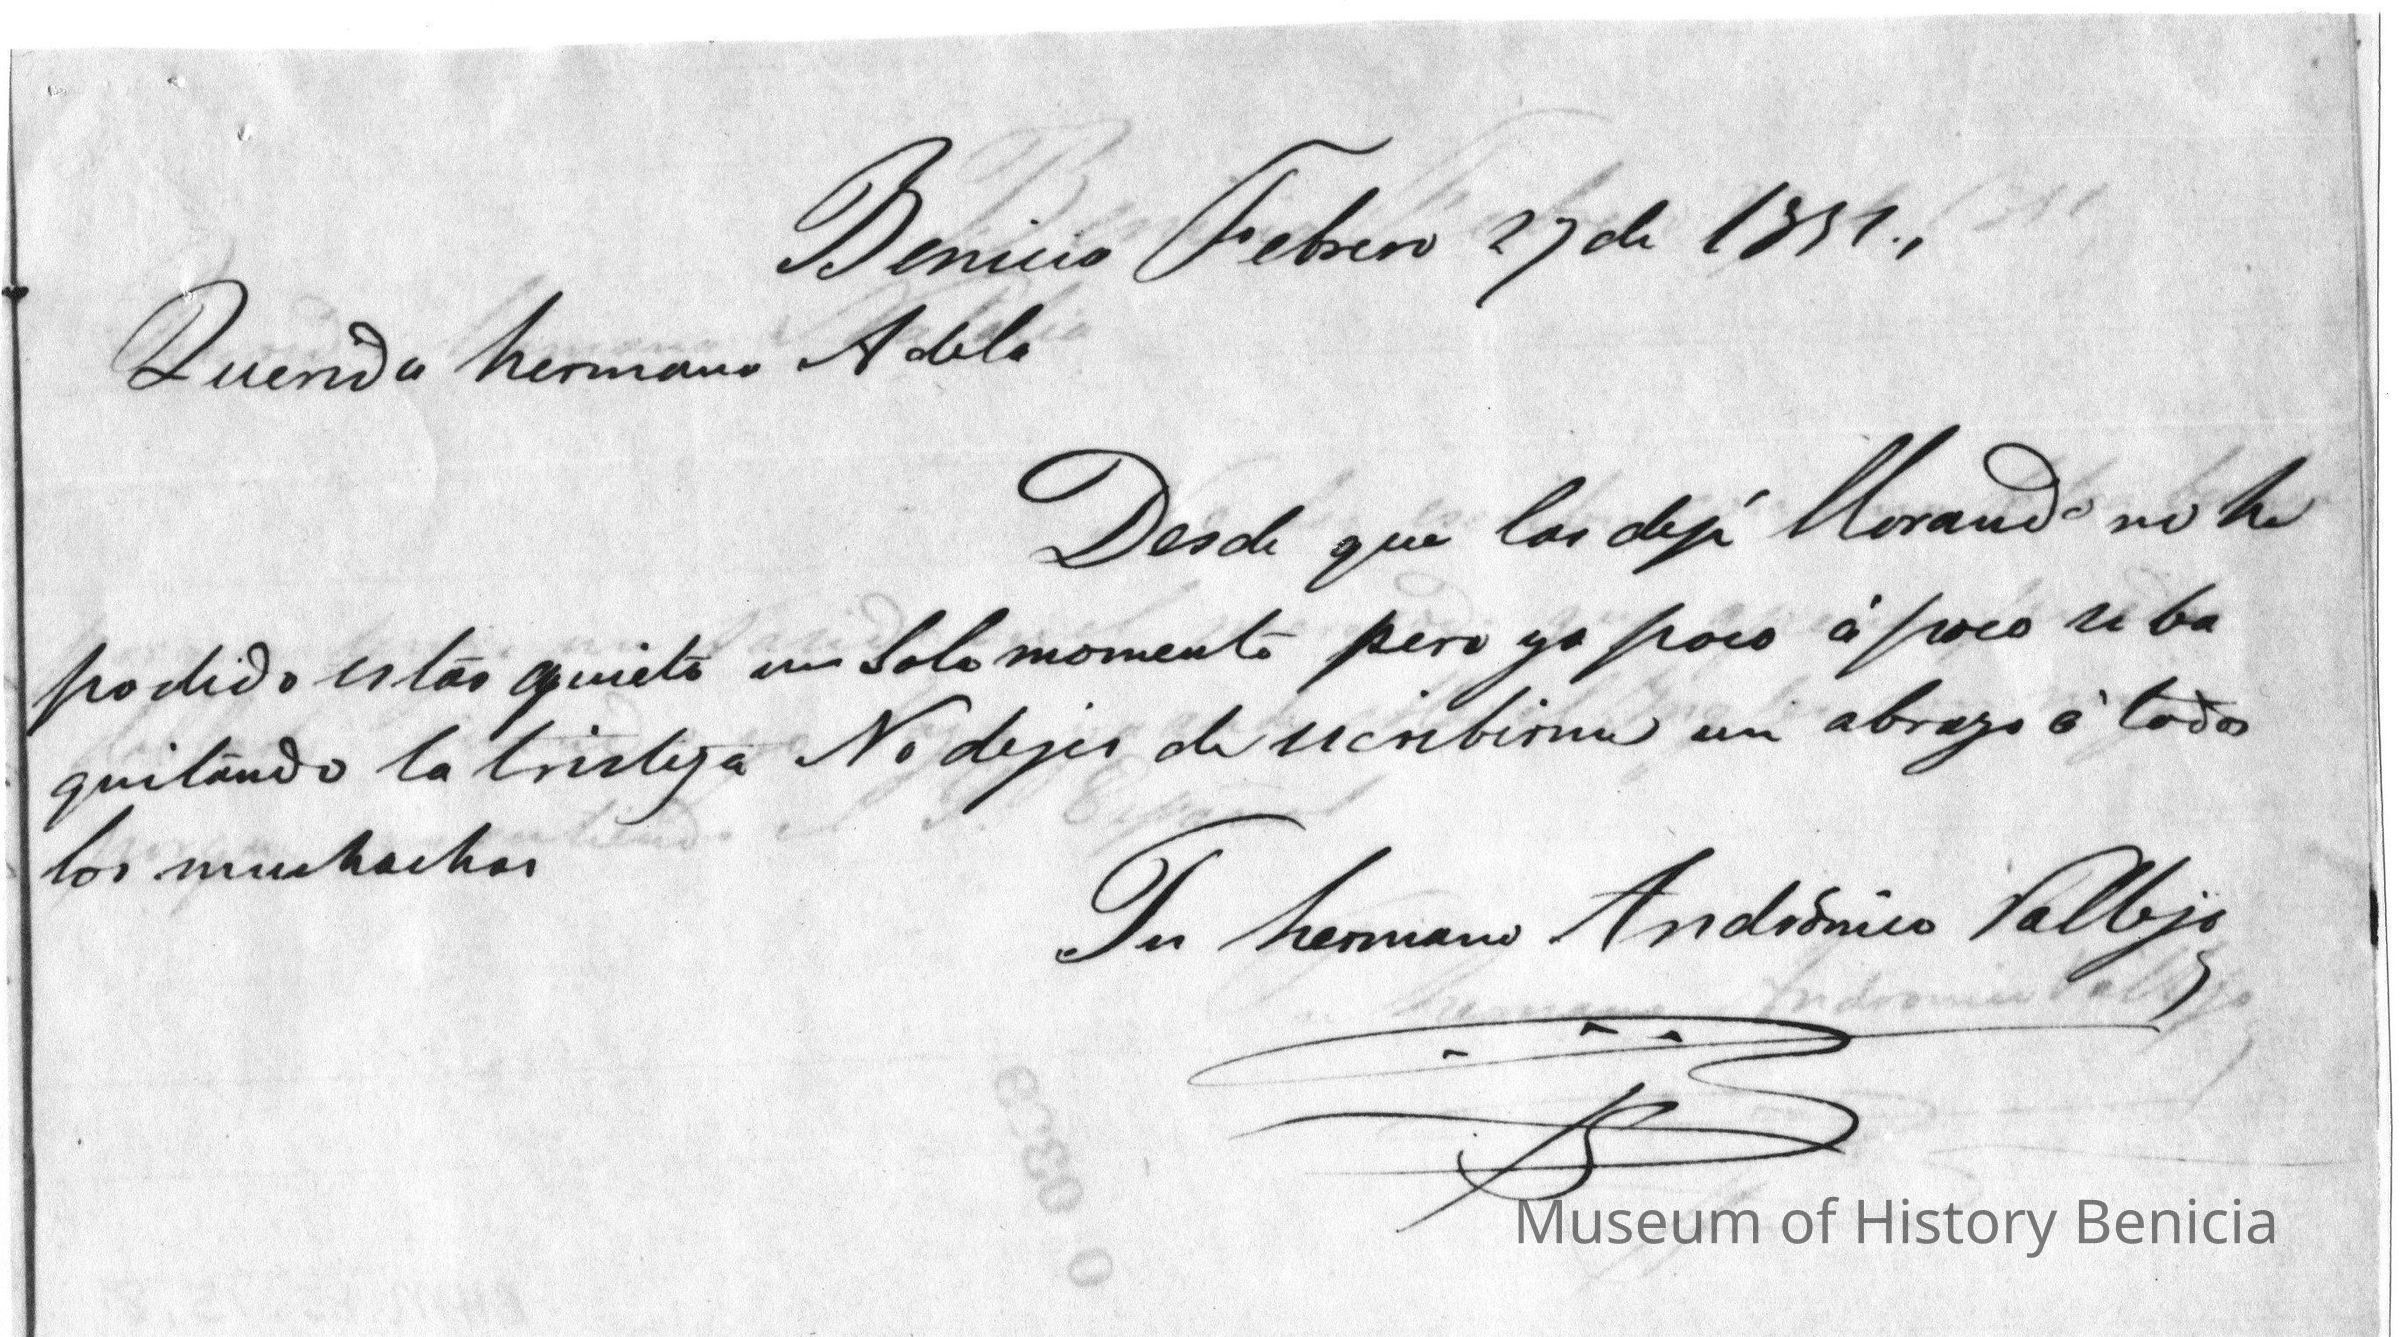 Benicia Febrero 27 de 1851.,
Querida hermana Adela
Desde que las dejé llorando no he
podido estar quieto un solo momento pero ya poco á poco se ba
quitando la tristeza No dejes de escribirme un abrazo á todos
los muchachos
Tu hermano Andrónico Vallejo
Museum of History Benicia